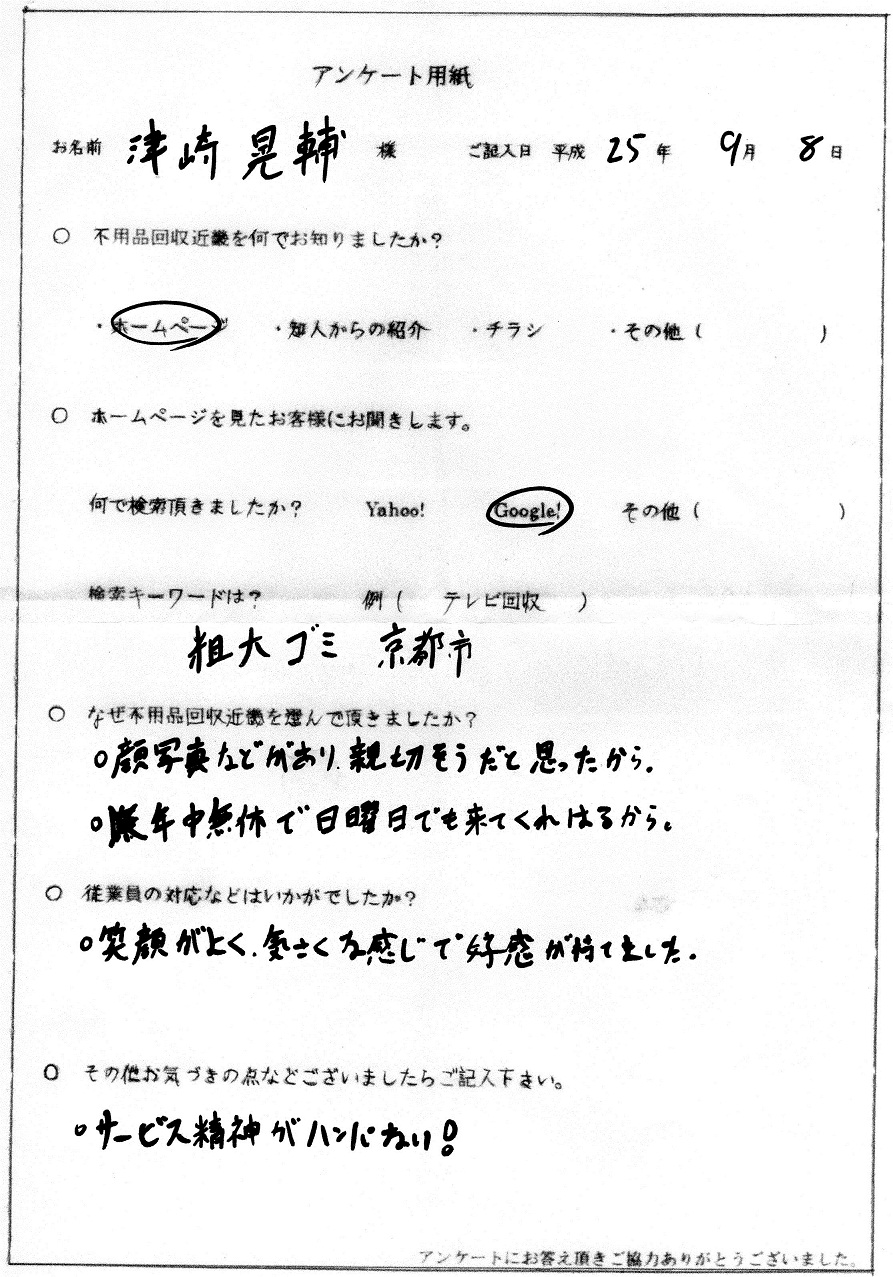 アンケート用紙
お名前 津崎晃輔 様 ご記入日 平成 25 年 9月 8日
○ 不用品回収近畿を何でお知りましたか?
・ホームページ ・知人からの紹介 ・チラシ ・その他( )
○ ホームページを見たお客様にお聞きします。
何で検索頂きましたか? Yahoo! Google! その他( )
検索キーワードは? 例( テレビ回収 )
粗大ゴミ 京都市
○ なぜ不用品回収近畿を選んで頂きましたか?
○顔写真などがあり、親切そうだと思ったから。
○年中無休で日曜日でも来てくれはるから。
○ 従業員の対応などはいかがでしたか?
○笑顔がよく、気さくな感じで好感が持てました。
○ その他お気づきの点などございましたらご記入下さい。
○サービス精神がハンパない!
アンケートにお答え頂きご協力ありがとうございました。